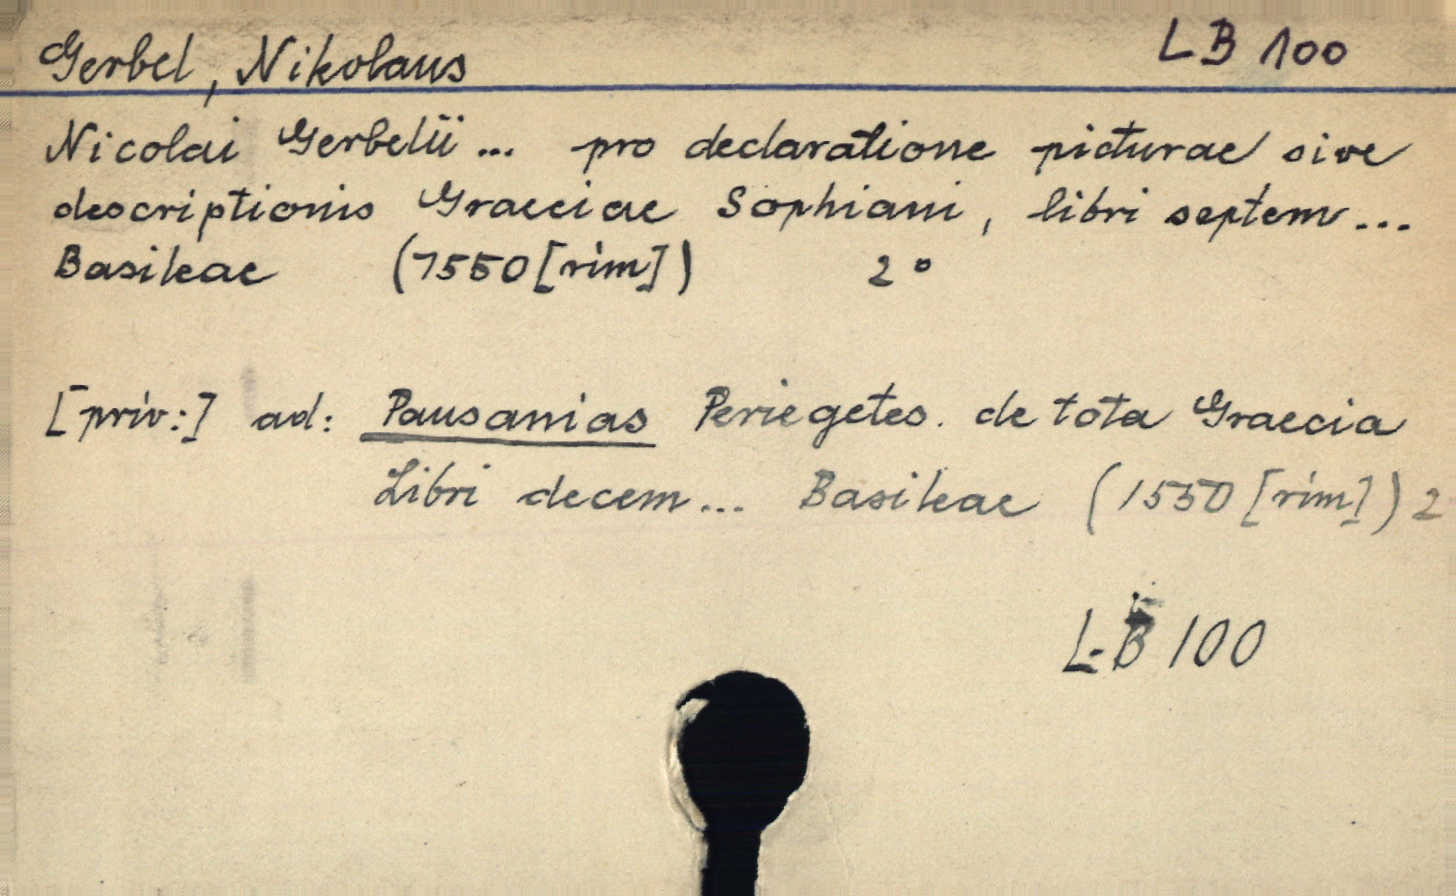 Gerbel, Nikolaus LB 100
Nicolai Gerbelii ... pro declaratione picturae sive
descriptionis Graeciae Sophiani, libri septem ...
Basileae (1550 [rim]) 2°
[priv:] ad: Pausanias Periegetes. de tota Graecia
Libri decem ... Basileae (1550 [rim]) 2
LB 100